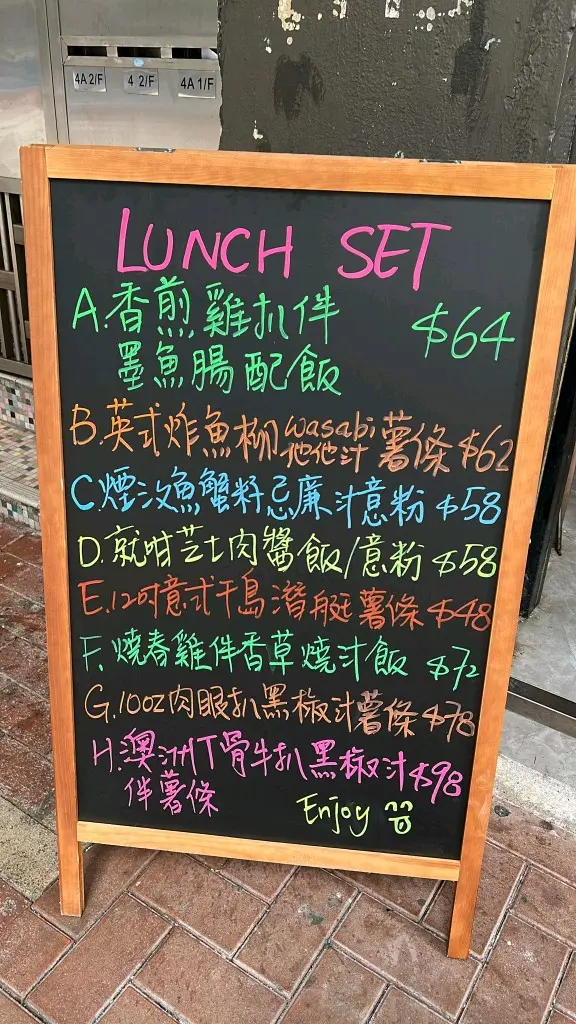 4A 2/F 4 2/F 4A 1/F
LUNCH SET
A.香煎雞扒伴 $64
墨魚腸配飯
B.英式炸魚柳wasabi他他汁薯條 $62
C.煙三文魚蟹籽忌廉汁意粉 $58
D.就咁芝士肉醬飯/意粉 $58
E.12吋意式千島潛艇薯條 $48
F.燒春雞伴香草燒汁飯 $72
G.10oz肉眼扒黑椒汁薯條 $78
H.澳洲T骨牛扒黑椒汁 $98
伴薯條
Enjoy